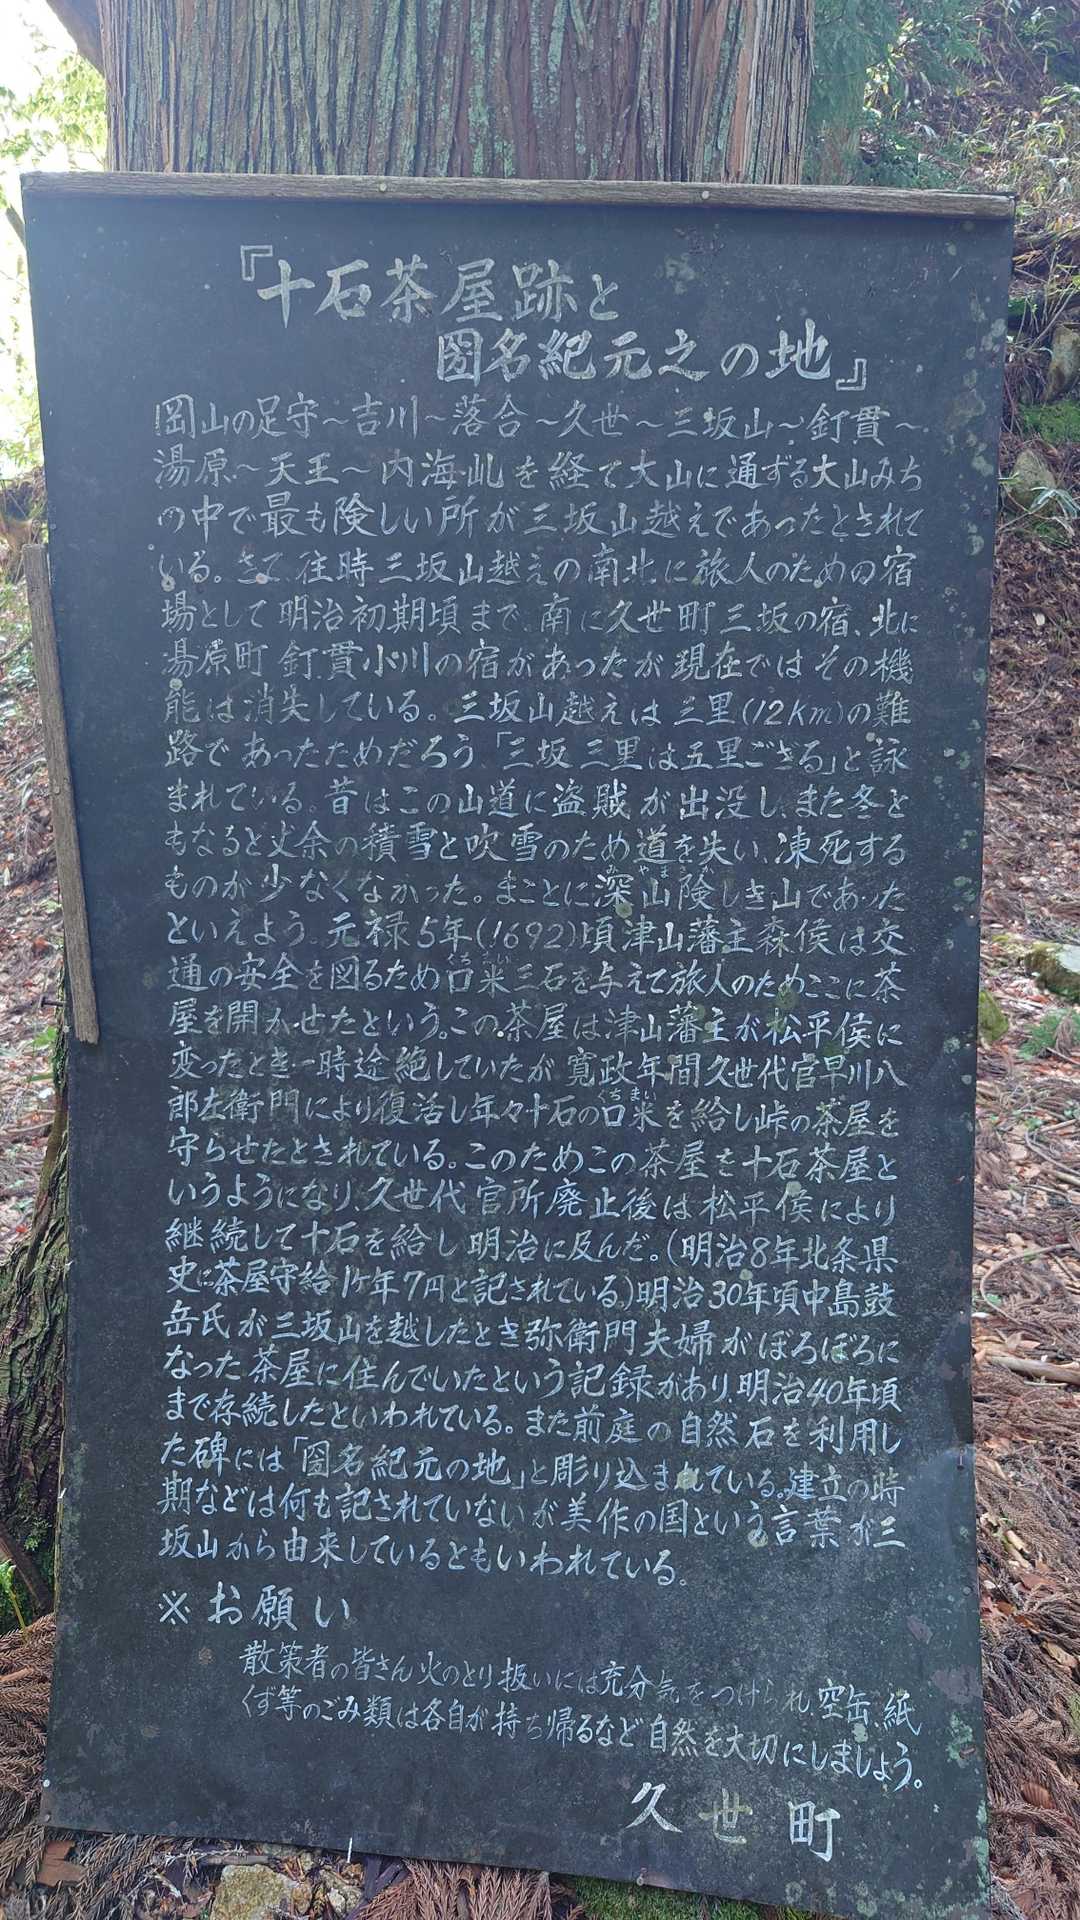 『十石茶屋跡と
圀名紀元之の地』
岡山の足守～吉川～落合～久世～三坂山～釘貫～
湯原～天王～内海乢を経て大山に通ずる大山みち
の中で最も険しい所が三坂山越えであったとされて
いる。さて、往時三坂山越えの南北に旅人のための宿
場として明治初期頃まで、南に久世町三坂の宿、北に
湯原町釘貫小川の宿があったが現在ではその機
能は消失している。三坂山越えは三里(12Km)の難
路であったためだろう、「三坂三里は五里ござる」と詠
まれている。昔はこの山道に盗賊が出没し、また冬と
もなると丈余の積雪と吹雪のため道を失い、凍死する
ものが少なくなかった。まことに深山険しき山であった
みやま
といえよう。元禄5年(1692)頃津山藩主森侯は交
通の安全を図るため口米三石を与えて旅人のためここに茶
くちまい
屋を開かせたという。この茶屋は津山藩主が松平侯に
変ったとき一時途絶していたが寛政年間久世代官早川八
郎左衛門により復活し年々十石の口米を給し峠の茶屋を
くちまい
守らせたとされている。このためこの茶屋を十石茶屋と
いうようになり、久世代官所廃止後は松平侯により
継続して十石を給し明治に及んだ。(明治8年北条県
史に茶屋守給1ヶ年7円と記されている)明治30年頃中島鼓
岳氏が三坂山を越したとき弥衛門夫婦がぼろぼろに
なった茶屋に住んでいたという記録があり、明治40年頃
まで存続したといわれている。また前庭の自然石を利用し
た碑には「圀名紀元の地」と彫り込まれている。建立の時
期などは何も記されていないが美作の国という言葉が三
坂山から由来しているともいわれている。
※お願い
散策者の皆さん火のとり扱いには充分気をつけられ、空缶、紙
くず等のごみ類は各自が持ち帰るなど自然を大切にしましょう。
久世町